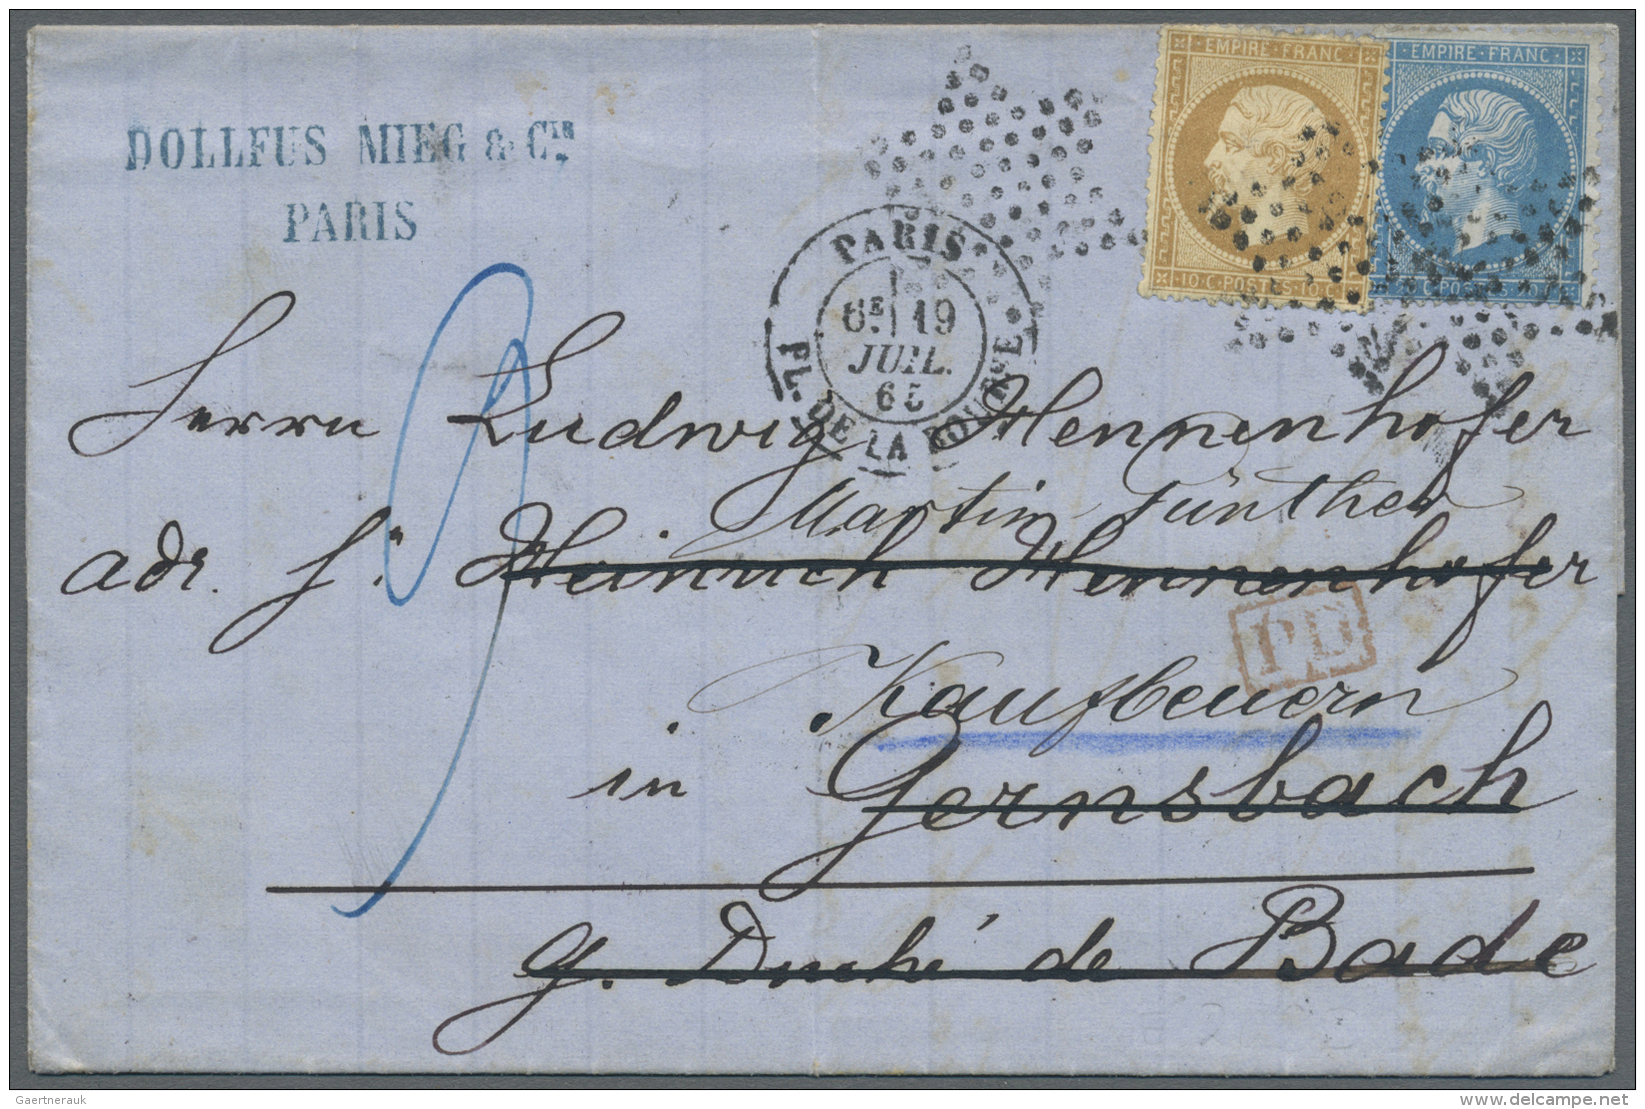 EMPIRE · FRANC
EMPIRE · FRANC
DOLLFUS MIEG & CIE
PARIS
10 · C · POSTES · 10 · C
20 · C · POSTES · 20 · C
PARIS
6E 19
JUIL.
65
PL. DE LA BOURSE
Herrn Ludwig Hennenhofer
Martin Günther
adr. Hn Heinrich Hennenhofer
PD
Kaufbeuern
in Gernsbach
g. Duché de Bade
Gaertnerauk
delcampe.net